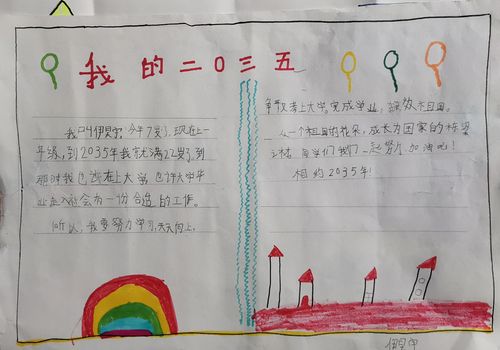 我的二〇三五
我叫伊 今年7岁,现在上一
年级,到2035年我就满22岁,到
那时我已 在上大学,也许大学毕
业走入社会有一份合适的工作。
所以,我要努力学习,天天向上,
争取考上大学,完成学业, 效祖国。
从一个祖国的花朵,成长为国家的栋梁
之材。同学们我们一起努力,加油吧!
相约2035年!